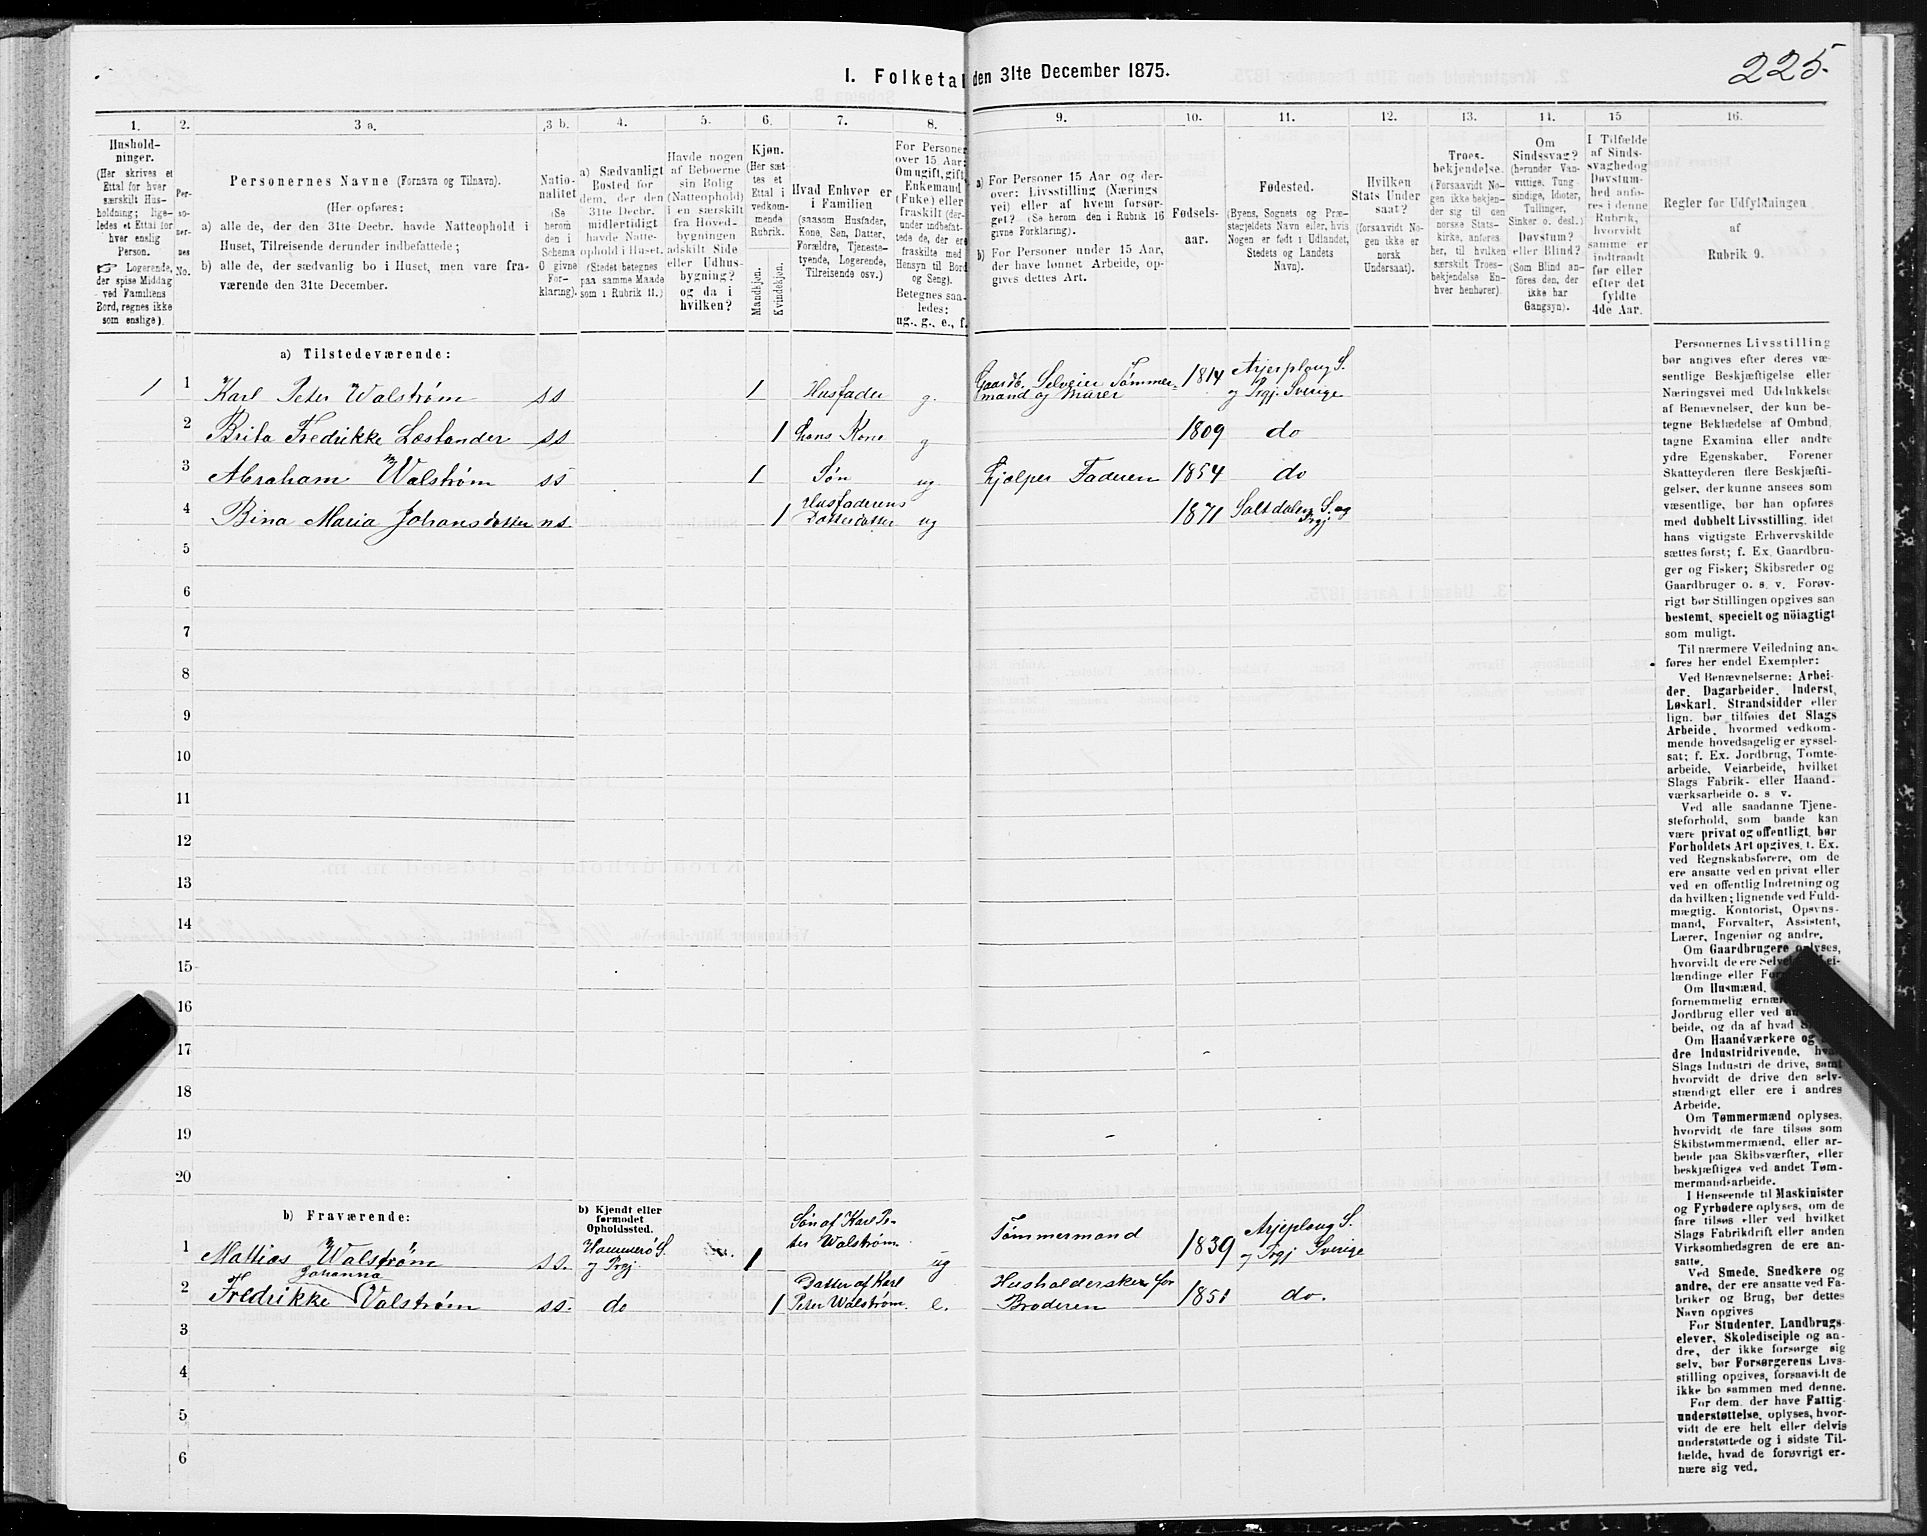 I. Folketal den 31te December 1875.
225.
1.
2.
3 a.
3 b.
4.
5.
6.
7.
8.
9.
10.
11.
12.
13.
14.
15
16.
Hushold-
ninger.
(Her skrives et
Ettal for hver
særskilt Hus-
holdning; lige-
ledes et Ettal for
hver enslig
Person.
☞ Logerende,
der spise Middag
ved Familiens
Bord, regnes ikke
som enslige).
Per-
so-
ner-
nes
No.
Personernes Navne (Fornavn og Tilnavn).
(Her opføres:
a) alle, de, der den 31te Decbr. havde Natteophold i
Huset, Tilreisende derunder indbefattede;
b) alle, de, der sædvanlig bo i Huset, men vare fra-
værende den 31te December.
Natio-
nalitet
(Se
herom
den i
Schema
O givne
For-
klaring).
a) Sædvanligt
Bosted for
dem, der den
31te Decbr.
midlertidigt
havde Natte-
ophold i Huset.
(Stedet betegnes
paa samme Maade
som i Rubrik 11.)
Havde nogen
af Beboerne
sin Bolig
(Natteophold)
i en særskilt
fra Hoved-
bygningen
adskilt Side
eller Udhus-
bygning?
og da i
hvilken?
Kjøn.
(Her sæt
tes et
Ettal i
vedkom-
mende
Rubrik.
Mandkjøn.
Kvindekjøn.
Hvad Enhver er
i Familien
(saasom Husfader,
Kone, Søn, Datter,
Forældre, Tjeneste-
tyende, Logerende,
Tilreisende osv.)
For Personer
over 15 Aar:
Om ugift, gift,
Enkemand
(Enke) eller
fraskilt (der-
under indbefat-
tede de, der ere
fraskilte med
Hensyn til Bord
og Seng).
Betegnes saa-
ledes:
ug., g., e., f.
a) For Personer 15 Aar og der-
over: Livsstilling (Nærings
vei) eller af hvem forsør-
get? (Se herom den i Rubrik 16
givne Forklaring).
b) For Personer under 15 Aar,
der have lønnet Arbeide, op-
gives dettes Art.
Fødsels-
aar.
Fødested.
(Byens, Sognets og Præ-
stegjeldets Navn eller, hvis
Nogen er født i Udlandet,
Stedets og Landets
Navn).
Hvilken
Stats Under
saat?
(forsaavidt No-
gen ikke er
norsk
Undersaat).
Troes-
bekjendelse.
(Forsaavidt No-
gen ikke bekjen-
der sig til den
norske Stats-
kirke, anføres
her, til hvilken
særskilt Troes-
bekjendelse En-
hver henhører).
Om
Sindssvag?
(herunder Van-
vittige, Tung
sindige, Idioter,
Tullinger,
Sinker o. desl.)
Døvstum?
eller Blind?
(Som Blind an-
føres den, der
ikke har
Gangsyn).
I Tilfælde
af Sinds-
svaghed og
Døvstum-
hed anfø-
res i denne
Rubrik,
hvorvidt
samme er
indtraadt
før eller
efter det
fyldte
4de Aar.
Regler for Udfyldningen
af
Rubrik 9.
a) Tilstedeværende:
1 1 Karl Peter Walstrøm ss 1 Husfader g. Gaardb. Selveier Tømmer-
mand og Murer 1814 Arjeploug S.
og Prgj. Sverige
2 Brita Fredrikke Læstander ss 1 hans Kone g 1809 do
3 Abraham Walstrøm ss 1 Søn ug hjælper Faderen 1854 do
4 Bina Maria Johansdatter ns. 1 Husfaderens
Datterdatter ug 1871 Saltdalen S. og
Prgj
5
6
7
8
9
10
11
12
13
14
15
16
17
18
19
20
b) Fraværende:
b) Kjendt eller
formodet
Opholdssted.
1 Mattias Walstrøm ss. Hammerø S.
og Prgj 1 Søn af Karl Pe-
ter Walstrøm ug Tømmermand 1839 Arjeploug S.
og Prgj Sverige
Johanna
2 Fredrikke Valstrøm ss. do 1 Datter af Karl
Peter Walstrøm. e. Husholderske for
Broderen 1851 do.
3
4
5
6
Personernes Livsstilling
bør angives efter deres væ-
sentlige Beskjæftigelse eller
Næringsvei med Udelukkelse
af Benævnelser, der kun be-
tegne Beklædelse af Ombud,
tagne Examina eller andre
ydre Egenskaber. Forener
Skatteyderen flere Beskjæfti-
gelser, der kunne ansees som
væsentlige, bør han opføres
med dobbelt Livsstilling, idet
hans vigtigste Erhvervskilde
sættes først; f. Ex. Gaardbru-
ger og Fisker; Skibsreder og
Gaardbruger o. s. v. Forøv-
rigt bør Stillingen opgives saa
bestemt, specielt og nöiagtigt
som muligt.
Til nærmere Veiledning an-
føres her endel Exempler:
Ved Benævnelserne: Arbei-
der, Dagarbeider, Inderst,
Løskarl, Strandsidder eller
lign. bør tilføies det Slags
Arbeide, hvormed vedkom-
mende hovedsagelig er syssel-
sat; f. Ex. Jordbrug, Tomte-
arbeide, Veiarbeide, hvilket
Slags Fabrik- eller Haand-
værksarbeide o. s v.
Ved alle saadanne Tjene-
steforhold, som baade kan
være privat og offentligt, bør
Forholdets Art opgives, f. Ex.
ved Regnskabsførere, om de
ere ansatte ved en privat eller
ved en offentlig Indretning og
da hvilken; lignende ved Fuld-
mægtig, Kontorist, Opsyns-
mand, Forvalter, Assistent,
Lærer, Ingeniør og andre.
Om Gaardbrugere oplyses,
hvorvidt de ere Selv
lændinge eller
Om Husmænd,
fornemmelig
Jordbrug eller ved
beide, og da af hvad
Om Haandværkere og
dre Industridrivende,
Slags Industri de drive, samt
hvorvidt de drive den selv-
stændigt eller ere i andres
Arbeide.
Om Tømmermænd oplyses,
hvorvidt de fare tilsøs som
Skibstømmermænd, eller ar-
beide paa Skibsværfter, eller
beskjæftiges ved andet Tøm-
mermandsarbeide.
I Henseende til Maskinister
og Fyrbødere oplyses, om de
fare tilsøs eller ved hvilket
Slags Fabrikdrift eller anden
Virksomhedsgren de ere an-
satte.
Ved Smede, Snedkere og
andre, der ere ansatte ved Fa-
briker og Brug, bør dettes
Navn opgives
For Studenter, Landbrugs-
elever, Skoledisciple og an-
dre, der ikke forsørge sig
selv, bør Forsørgerens Livs-
stilling opgives, forsaavidt de
ikke bo sammen med denne.
For dem, der have Fattig-
understøttelse, oplyses, hvor-
vidt de ere helt eller delvis
understøttede og i sidste Til-
fælde, hvad de forøvrigt er-
nære sig ved.